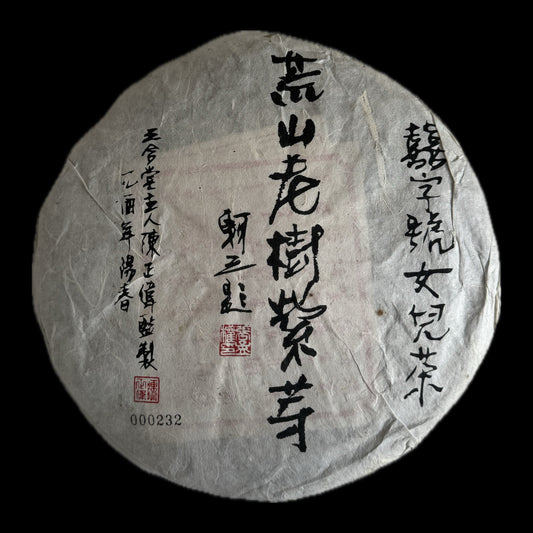 囍字號女兒茶
荒山老樹紫芽
三合堂主人陳正偉監製
乙酉年陽春
000232